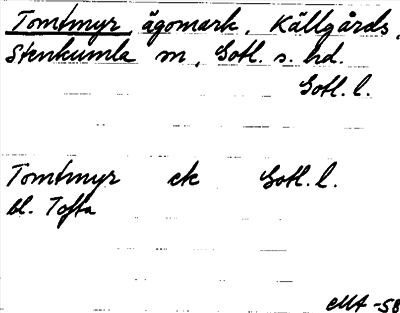 Tomtmyr ägomark, Källgårds,
Stenkumla sn, Gotl. s. hd.
Gotl. l.
Tomtmyr ek Gotl. l.
bl. Tofta
MA -58